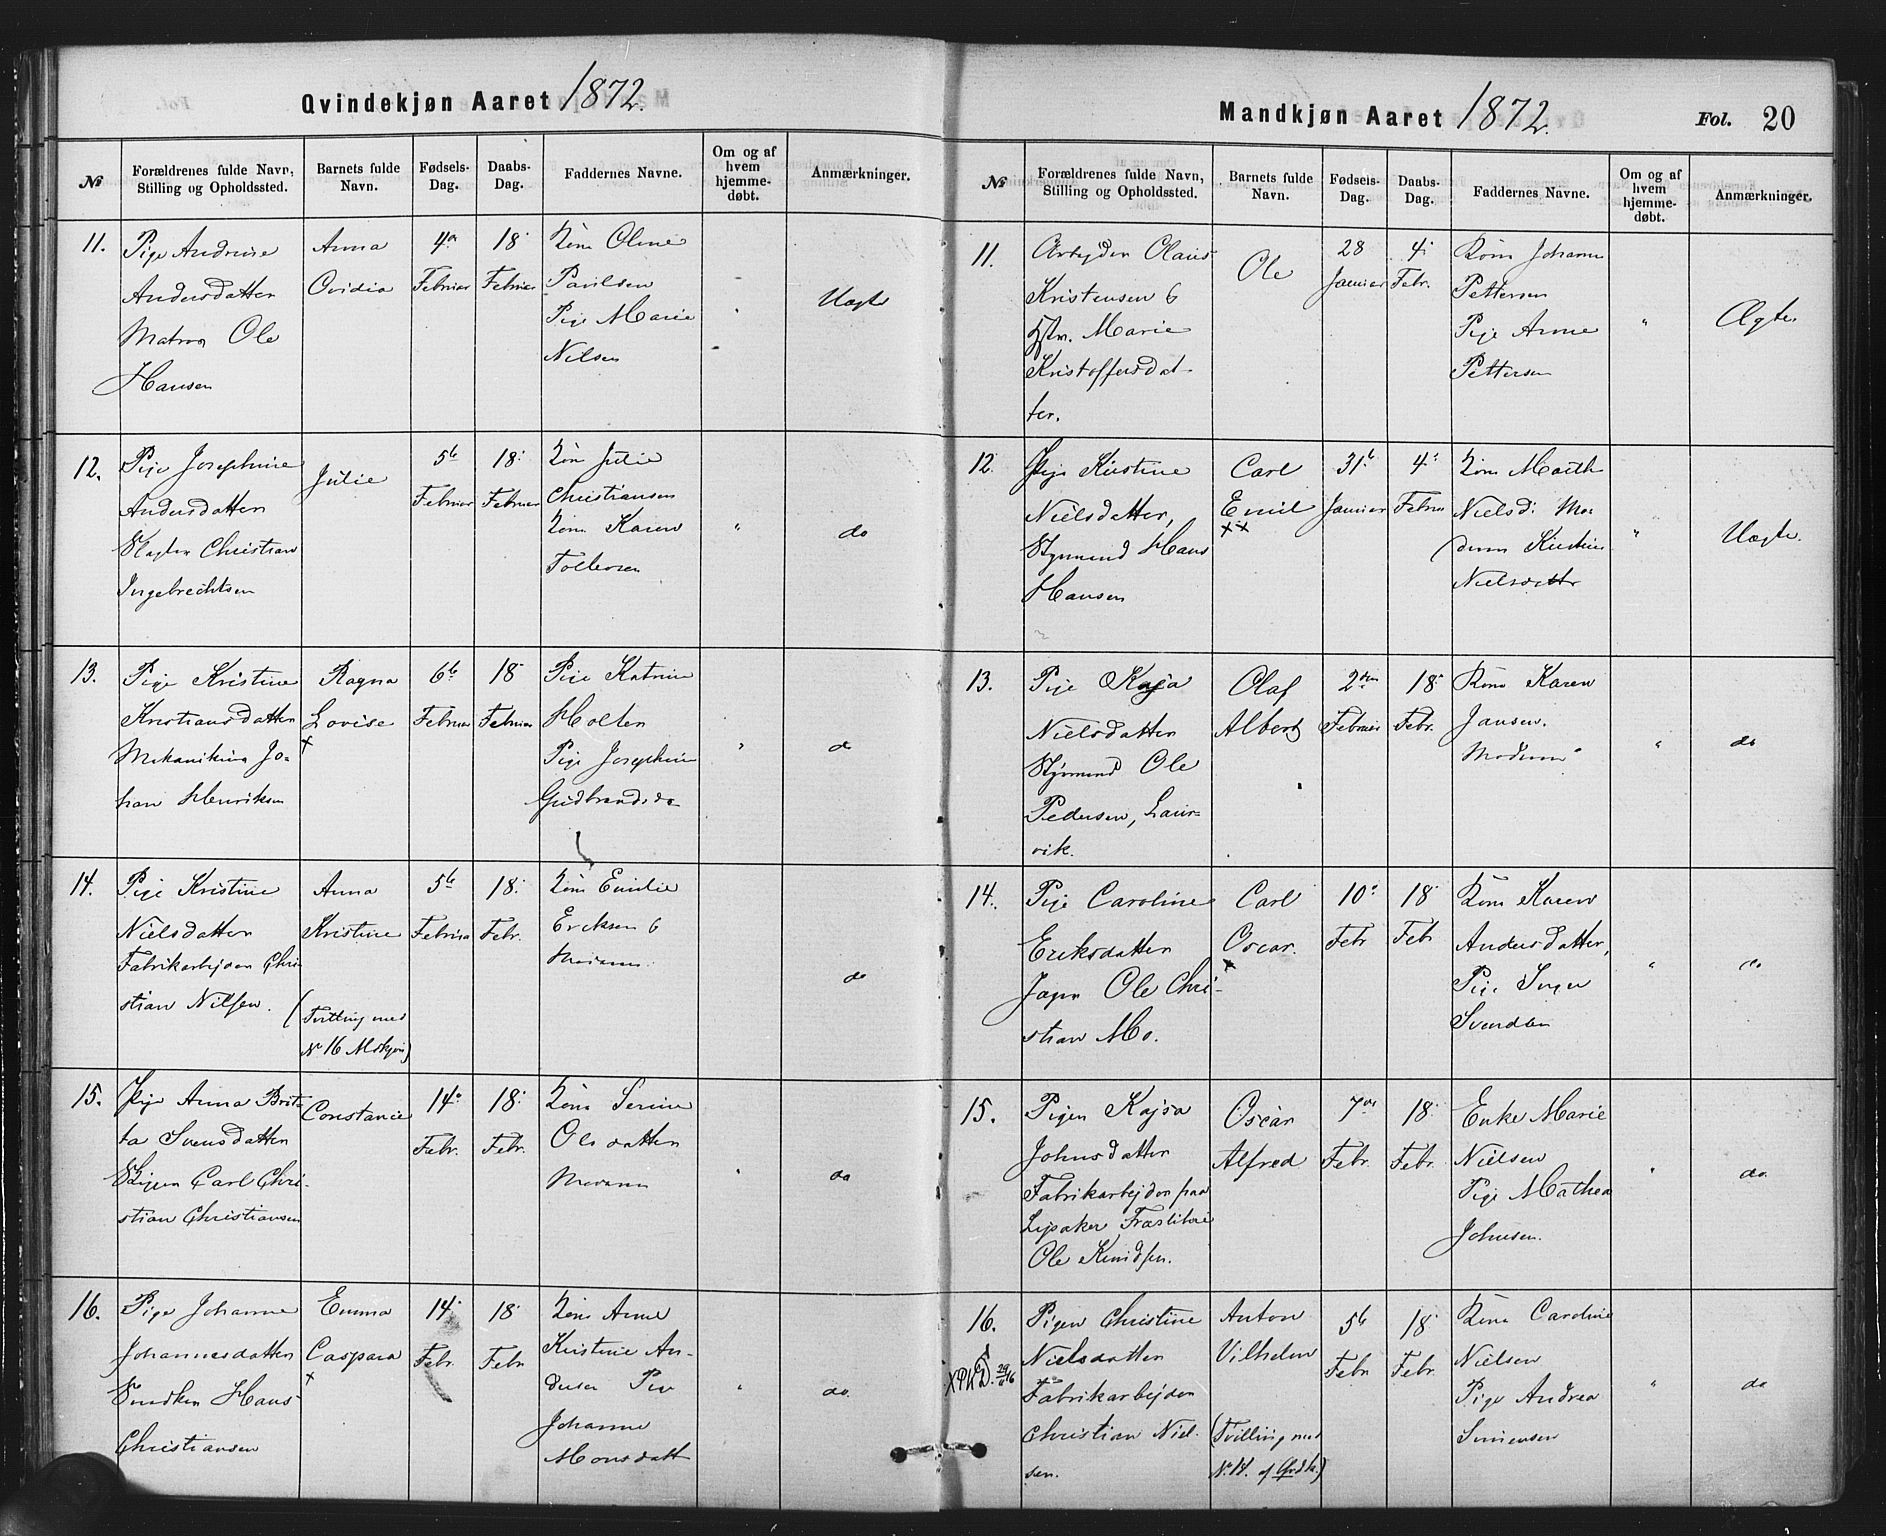 Qvindekjøn Aaret 1872.
№
Forældrenes fulde Navn, Stilling og Opholdssted.
Barnets fulde Navn.
Fødsels-Dag.
Daabs-Dag.
Faddernes Navne.
Om og af hvem hjemme-døbt.
Anmærkninger.
11.
Pige Andrine
Andersdatter
Matros Ole
Hansen
Anna
Ovidia
4de
Februar
18
Februar
Kone Oline
Paulsen
Pige Marie
Nilsen
"
Uægte
12.
Pige Josephine
Andersdatter
Slagter Christian
Ingebrechtsen
Julie
5te
Februar
18
Februar
Kone Julie
Christiansen
Kone Karen
Tollefsen
"
do
13.
Pige Kristine
Kristiansdatter
Mekanikus Jo-
han Henriksen
Ragna
Lovise
×
6te
Februar
18
Februar
Pige Katrine
Holter
Pige Josephine
Gudbrandsda
"
do
14.
Pige Kristine
Nielsdatter
Fabrikarbejder Chri
stian Nilsen.
Anna
Kristine
(Tvilling med
No 16 Mskjøn)
5te
Februar
18
Febr.
Kone Emilie
Eriksen &
Moderen
do
15.
Pige Anna Brit-
ta Svensdatter
Carl Chri-
stian Christiansen
Constance
14
Febr.
18
Febr.
Kone Serine
Olsdatter
Moderen
"
do
16.
Pige Johanne
Johannesdatter
Snedker Hans
Christiansen
Emma
Caspara
×
14
Febr
18
Febr
Kone Anne
Kristine An-
dersen Pige
Johanne
Monsdatt
"
do.
Mandkjøn Aaret 1872.
Fol. 20
№
Forældrenes fulde Navn, Stilling og Opholdssted.
Barnets fulde Navn.
Fødsels-Dag.
Daabs-Dag.
Faddernes Navne.
Om og af hvem hjemme-døbt.
Anmærkninger.
11.
Arbejder Olaus
Kristensen &
Hstr. Marie
Kristoffersdat-
ter.
Ole
28
Januar
4
Febr.
Kone Johanne
Pettersen
Pige Anne
Pettersen
"
Ægte
12.
Pige Kirstine
Nielsdatter,
Styrmand Hans
Hansen
Carl
Emil
××
31te
Januar
4
Februar
Kone Marth
Nielsd: Mo-
deren Kirstine
Nielsdattr
"
Uægte.
13.
Pige Kaja
Nielsdatter
Styrmand Ole
Pedersen, Laur-
vik.
Olaf
Albert
2den
Februar
18
Febr.
Kone Karen
Jansen.
Moderen
"
do
14.
Pige Caroline
Eriksdatter
Jager Ole Chri-
stian Mo.
Carl
Oscar.
×
10
Febr
18
Febr
Kone Karen
Andersdatter,
Pige Inger
Svendsen
"
do
15.
Pigen Kajsa
Johnsdatter
Fabrikarbejder paa
Lysaker Træsliberi
Ole Knudsen.
Oscar
Alfred
7de
Febr.
18
Febr.
Enke Marie
Nielsen
Pige Mathea
Johnsen.
"
do.
16.
Pigen Christine
Nielsdatter
Fabrikarbejder
Christian Niel-
sen.
Anton
Vilhelm
(Tvilling med
No 14. af Qvdk.)
5te
Febr
18
Febr.
Kone Caroline
Nielsen
Pige Andrea
Simensen
"
do